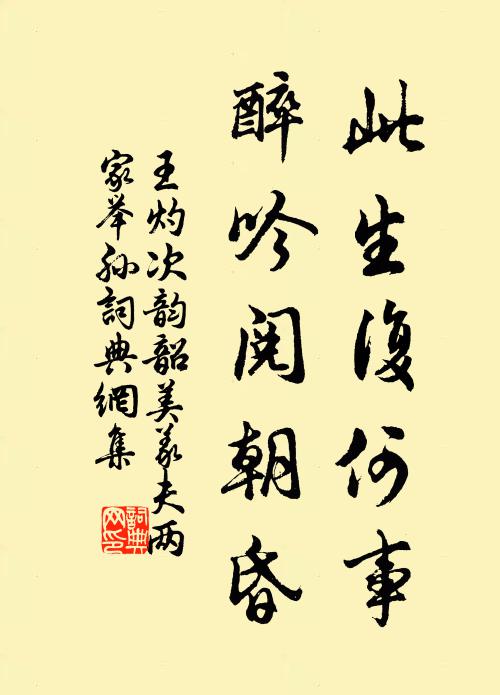 此生復何事
醉吟閱朝昏
王灼次韵韶美義夫两
家举孙詞典網集
詞典
网印